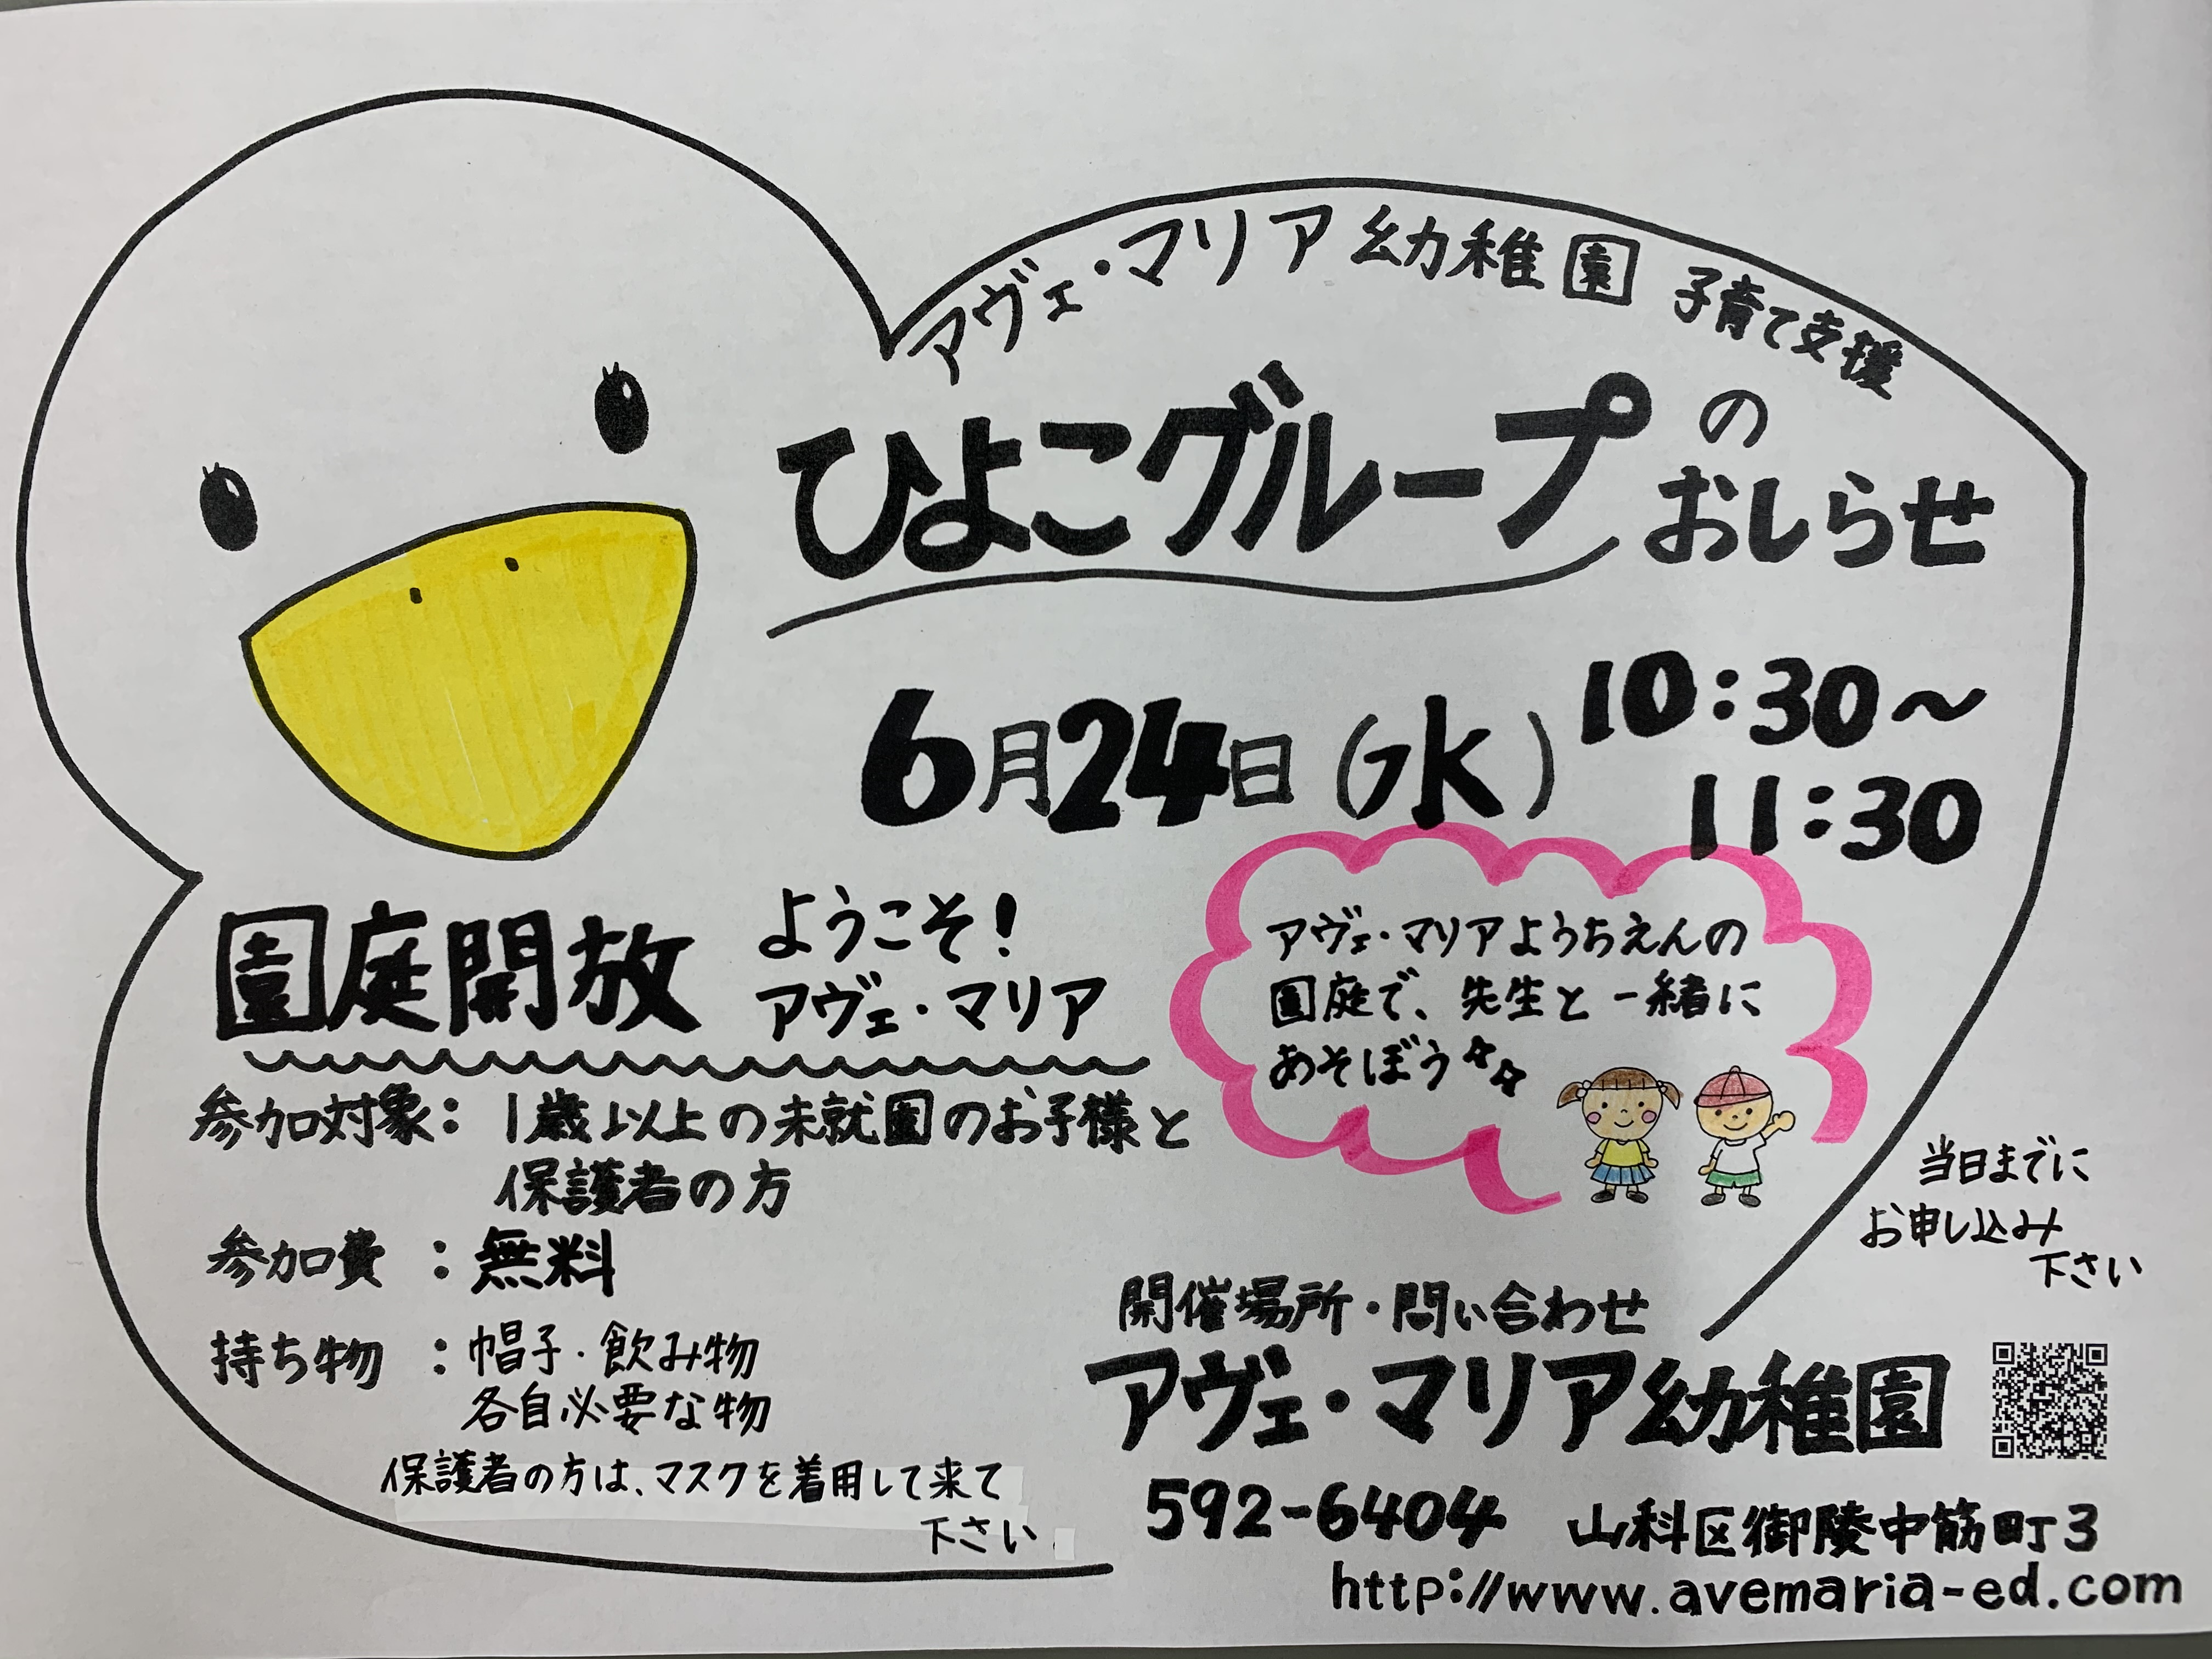 アヴェ・マリア幼稚園 子育て支援
ひよこグループの
おしらせ
6月24日(水) 10:30～
11:30
園庭開放
ようこそ!
アヴェ・マリア
アヴェ・マリアようちえんの
園庭で、先生と一緒に
あそぼう☆☆
参加対象: 1歳以上の未就園のお子様と
保護者の方
参加費 : 無料
持ち物 : 帽子・飲み物
各自必要な物
保護者の方は、マスクを着用して来て
下さい.
当日までに
お申し込み
下さい
開催場所・問い合わせ
アヴェ・マリア幼稚園
592-6404 山科区御陵中筋町3
http://www.avemaria-ed.com